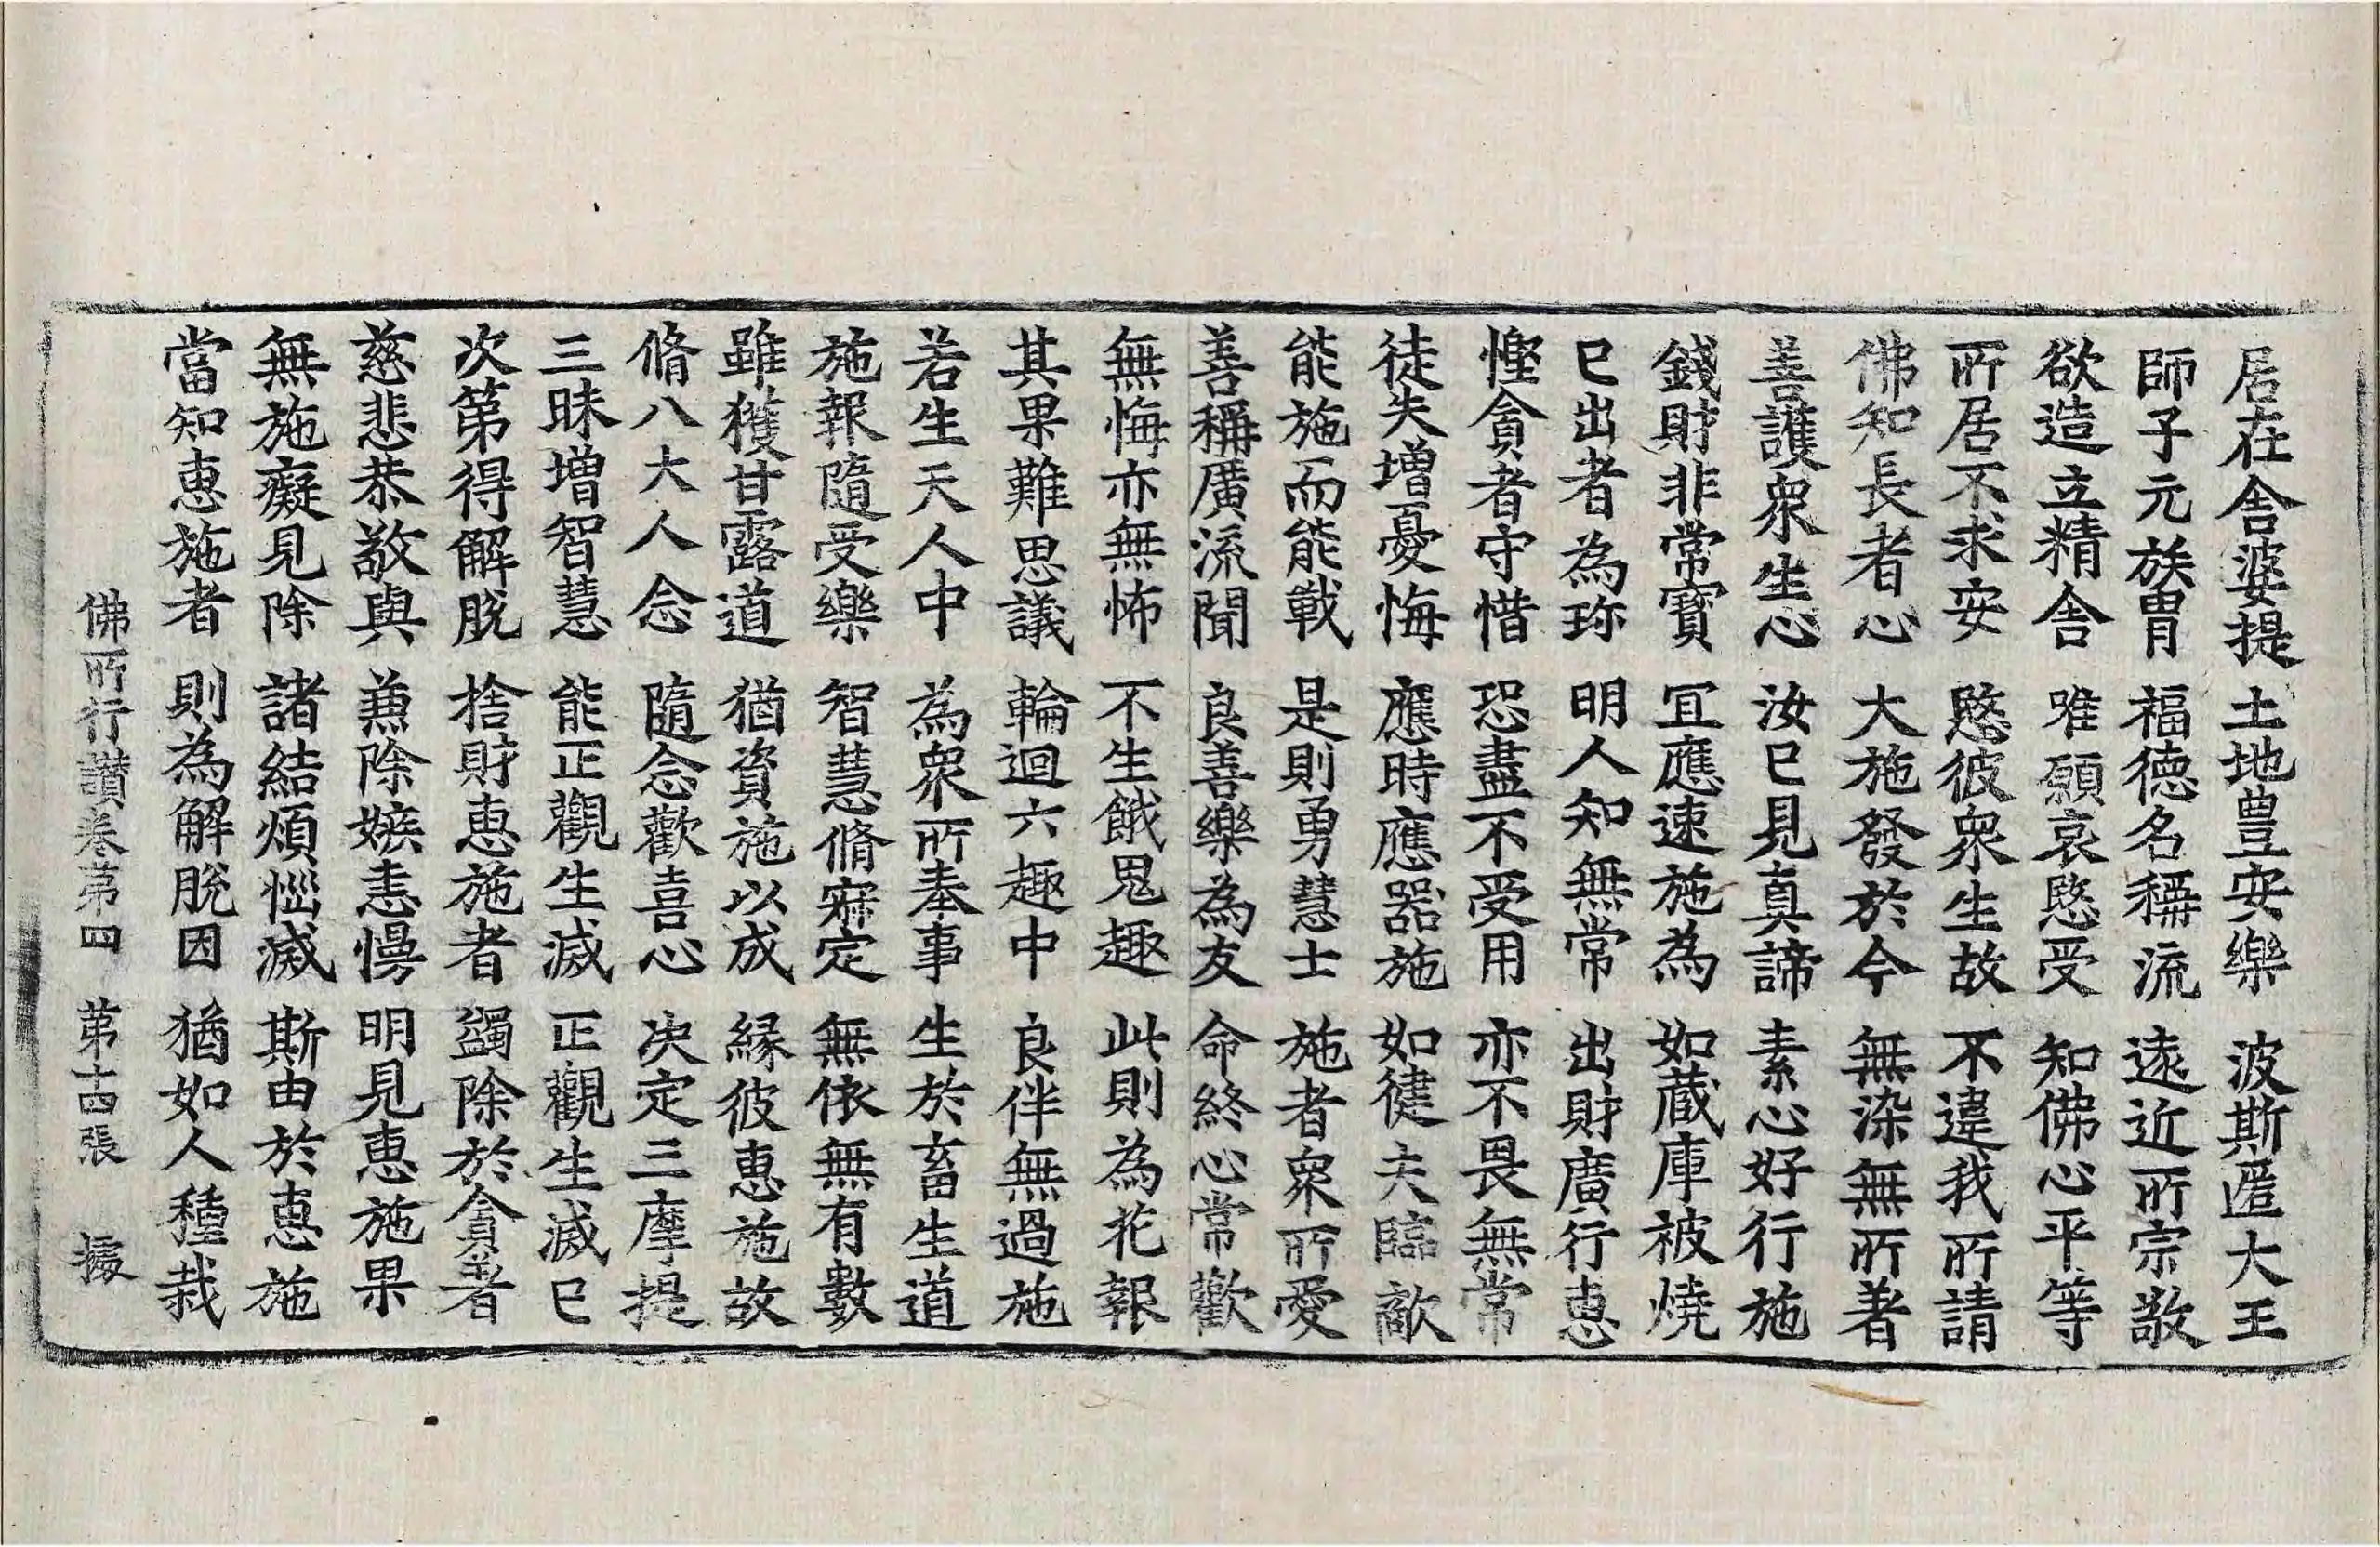 居在舎婆提　土地豊安樂　波斯匿大王
師子元族胄　福德名稱流　遠近所宗敬
欲造立精舎　唯願哀愍受　知佛心平等
所居不求安　愍彼衆生故　不違我所請
佛知長者心　大施發於今　無染無所著
善護衆生心　汝已見真諦　素心好行施
錢財非常寶　冝應速施為　如蔵庫被燒
已出者為珎　明人知無常　出財廣行惠
慳貪者守惜　恐盡不受用　亦不畏無常
徒失增憂悔　應時應器施　如健夫臨敵
能施而能戰　是則勇慧士　施者衆所愛
善稱廣流聞　良善樂為友　命終心常歡
無悔亦無怖　不生餓鬼趣　此則為花報
其果難思議　輪迴六趣中　良伴無過施
若生天人中　為衆所奉事　生於畜生道
施報隨受樂　智慧脩寂定　無依無有數
雖獲甘露道　猶資施以成　縁彼惠施故
脩八大人念　隨念歡喜心　决定三摩提
三昧增智慧　能正觀生滅　正觀生滅已
次第得解脫　捨財惠施者　蠲除於貪著
慈悲恭敬與　兼除嫉恚慢　明見惠施果
無施癡見除　諸結煩惱滅　斯由於惠施
當知惠施者　則為解脫因　猶如人種栽
佛所行讃卷第四　第十四張　據